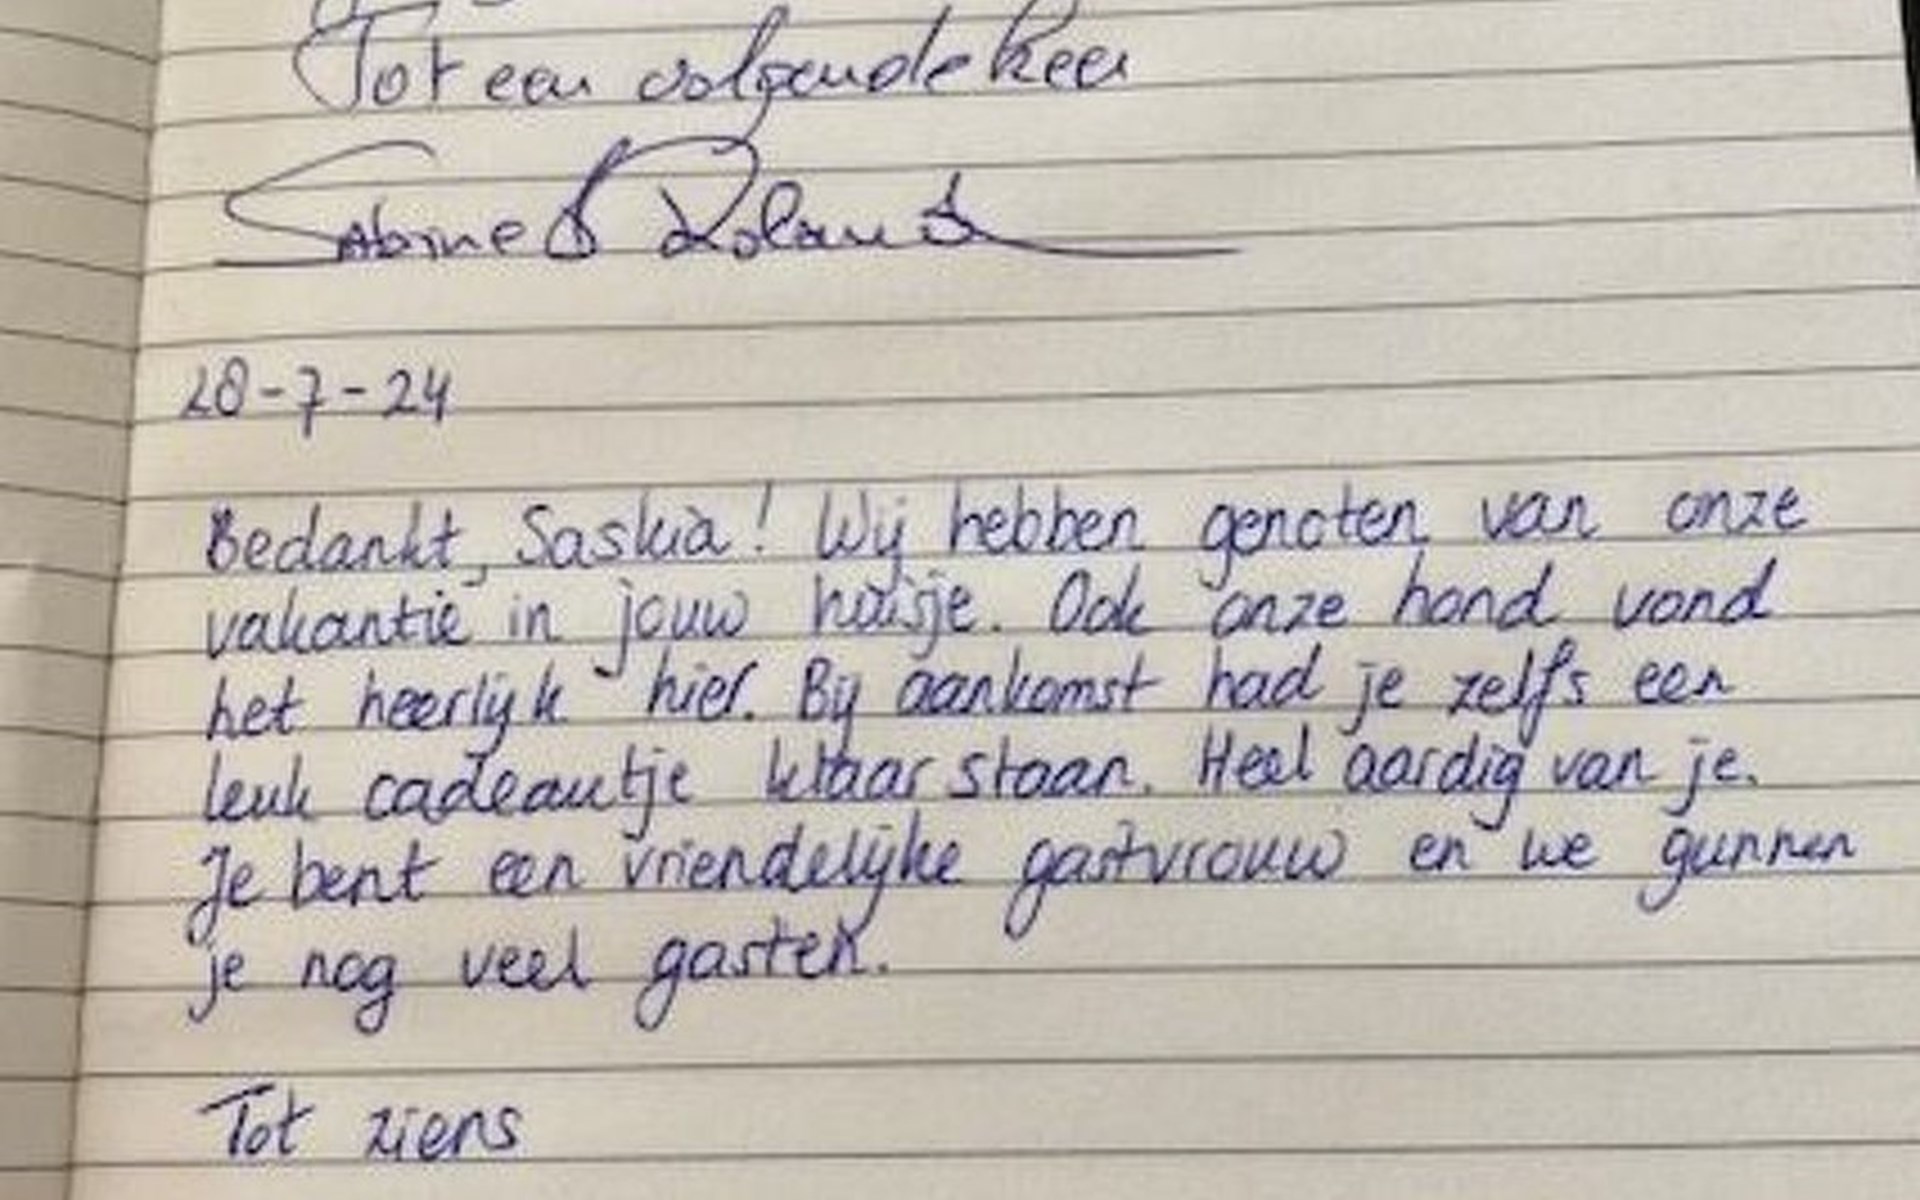 Tot een volgende keer
Sabine & Roland
28-7-24
Bedankt, Saskia! Wij hebben genoten van onze
vakantie in jouw huisje. Ook onze hond vond
het heerlijk hier. Bij aankomst had je zelfs een
leuk cadeautje klaar staan. Heel aardig van je.
Je bent een vriendelijke gastvrouw en we gunnen
je nog veel gasten.
Tot ziens